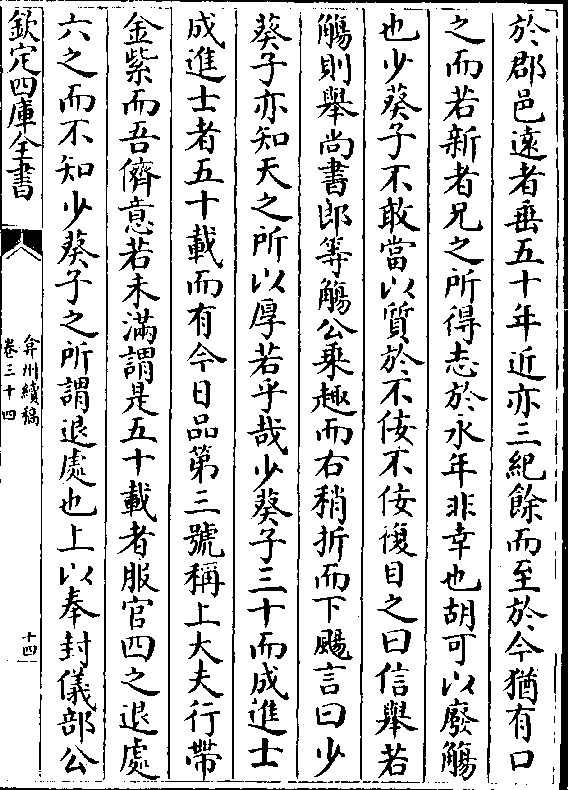 於郡邑遠者垂五十年近亦三紀餘而至於今猶有口
之而若新者兄之所得志於永年非幸也胡可以廢觴
也少葵子不敢當以質於不佞不佞復目之曰信舉若
觴則舉尚書郎等觴公乘趣而右稍折而下颺言曰少
葵子亦知天之所以厚若乎哉少葵子三十而成進士
成進士者五十載而有今日品第三號稱上大夫行帶
金紫而吾儕意若未滿謂是五十載者服官四之退處
六之而不知少葵子之所謂退處也上以奉封儀部公
欽定四庫全書
弇州續稿
卷三十四
十四